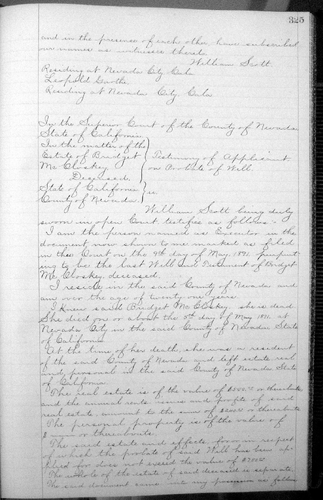 325
and in the presence of each other, have subscribed
our names as witnesses thereto.
William Scott.
Residing at Nevada City Cala
Leopold Garthe
Residing at Nevada City Cala
In the Superior Court of the County of Nevada
State of California.
In the matter of the
Estate of Bridget
McCloskey
Deceased.
Testimony of Applicant
on Probate of Will.
State of California
County of Nevada. ss
William Scott being duly
sworn in open Court testifies as follows:
I am the person named as Executor in the
document now shown to me marked as filed
in this Court on the day of May 1891. purport
ing to be the Last Will and Testament of Bridget
McCloskey deceased.
I reside in the said County of Nevada and
am over the age of twenty one years.
I knew said Bridget McCloskey. she is dead.
She died on or about the day of May 1891. at
Nevada City in the said County of Nevada, State
of California
At the time of her death, she was a resident
of the said County of Nevada and left estate real
and personal in the said County of Nevada State
of California
The real estate is of the value of or thereabouts
and the annual rents issues and profits of said
real estate amount to the sum of or thereabouts
The personal property is of the value of
or thereabouts.
The said estate and effects, for or in respect
of which the probate of said Will has been ap
plied for does not exceed the value of
The whole of the estate of said deceased is separate.
The said document came into my possession as follows